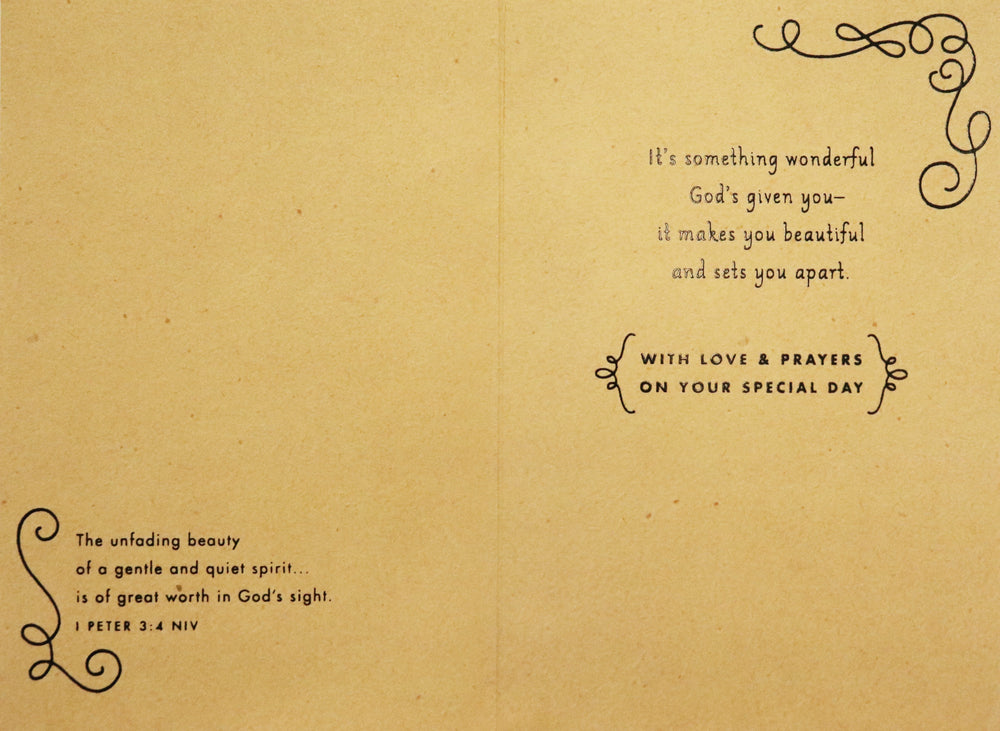 The unfading beauty
of a gentle and quiet spirit...
is of great worth in God's sight.
1 PETER 3:4 NIV
It's something wonderful
God's given you—
it makes you beautiful
and sets you apart.
WITH LOVE & PRAYERS
ON YOUR SPECIAL DAY